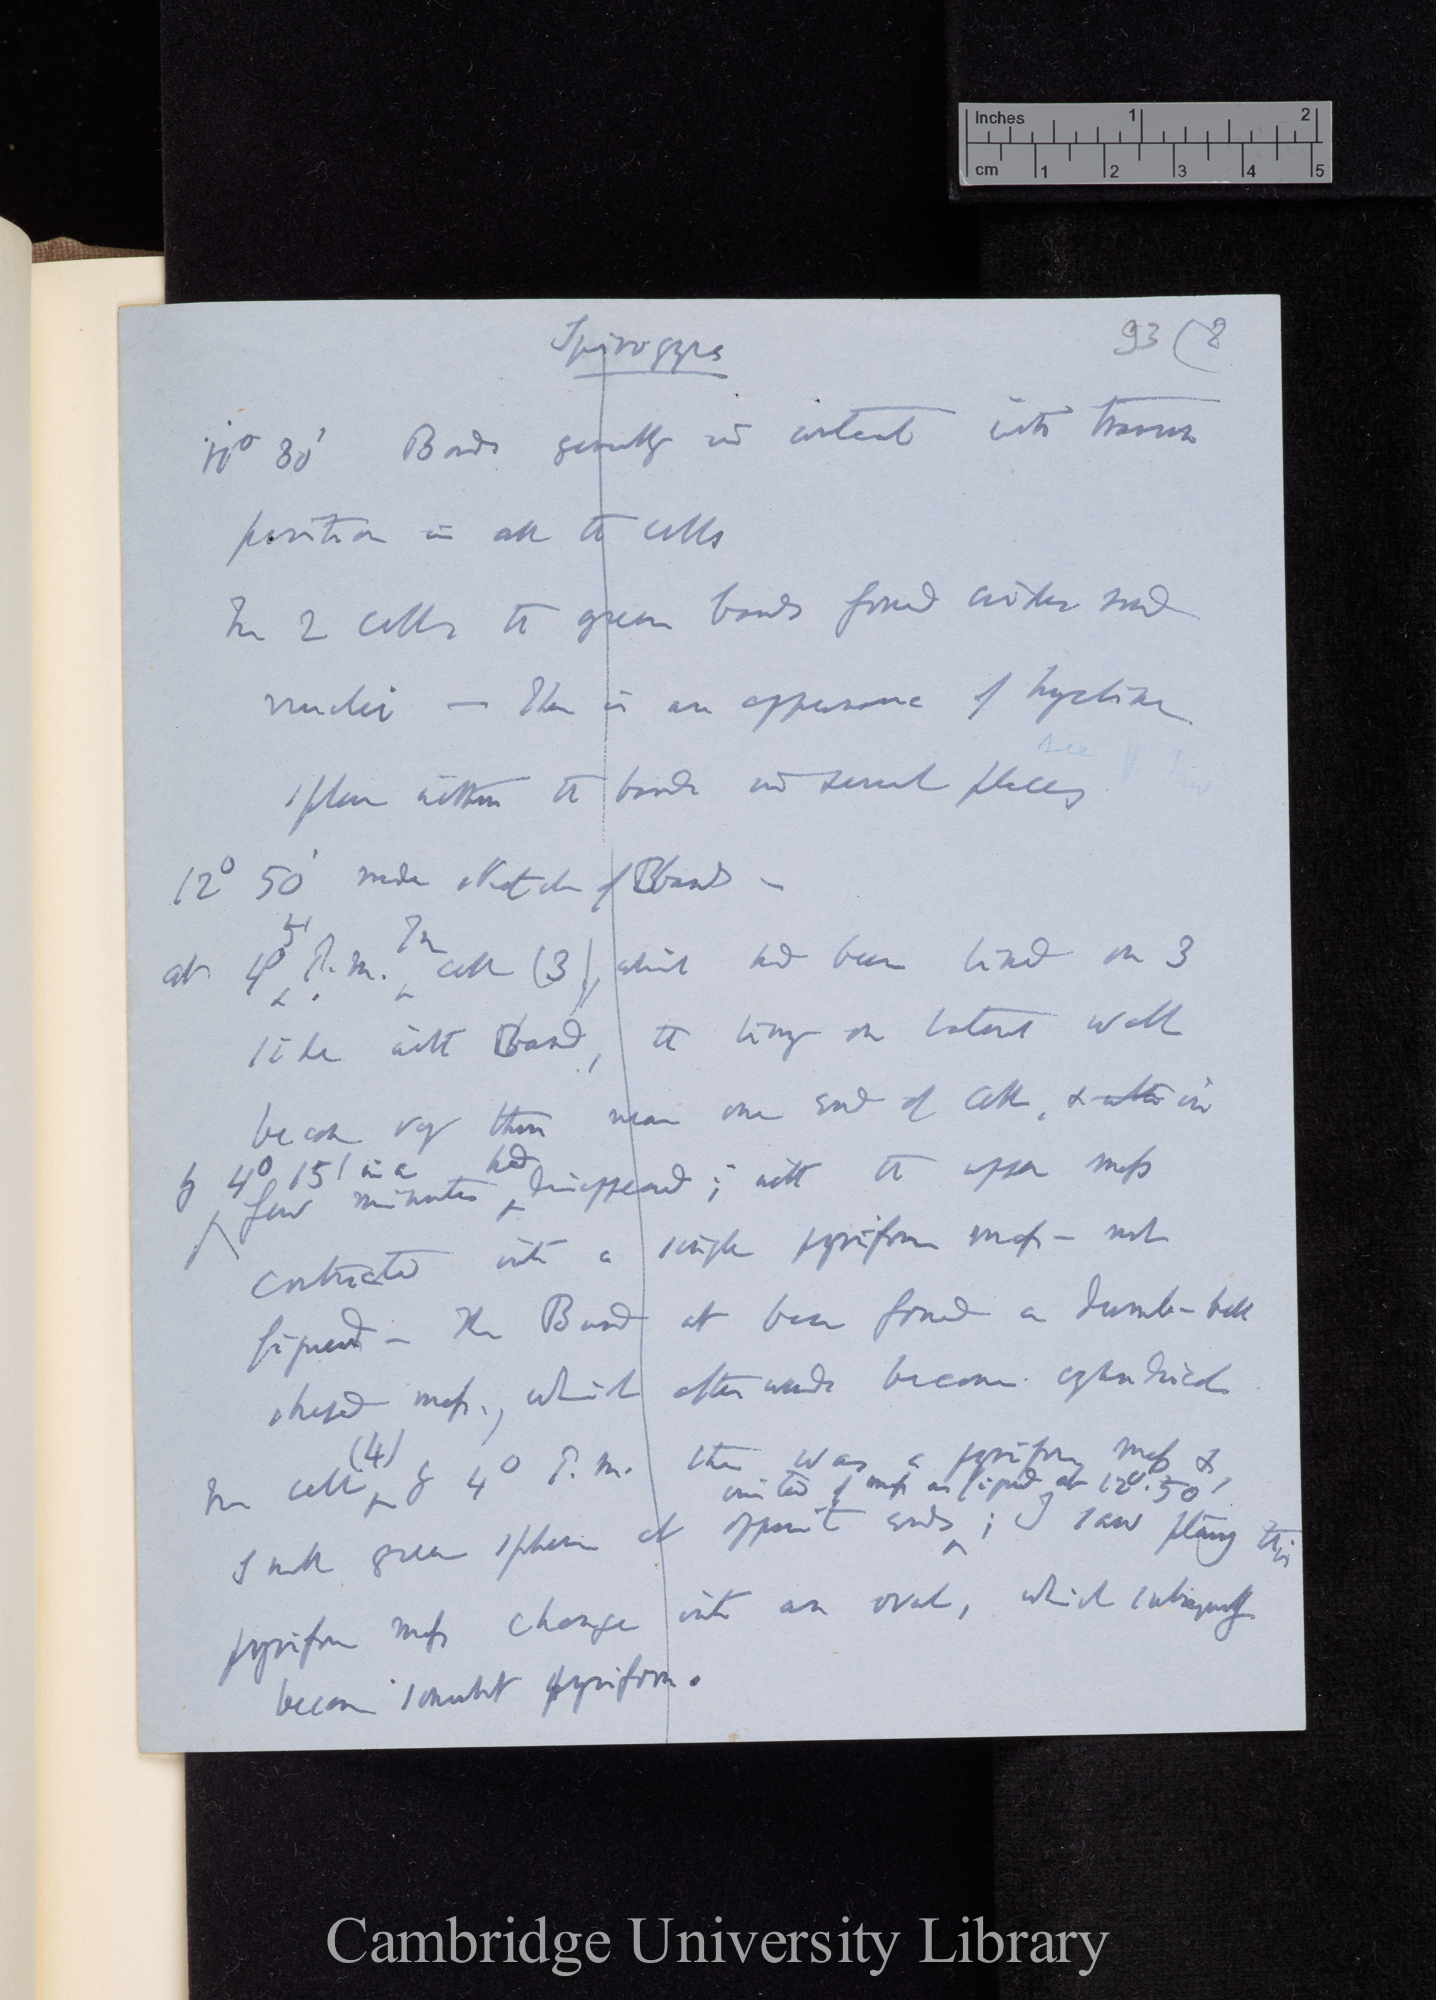 Inches 1 2
cm 1 2 3 4 5
Spirogyra
93 (8
10° 30' Bands generally in contact into transverse
position in all the cells
In 2 cells the green bands formed round
nuclei — There is an appearance of hyaline
see
sphere within the bands in several places
12° 50' made sketch of Bands —
5' In
at 4° P.m. cell (3), which had been lined on 3
side with Band, the lining on lateral wall
became very thin near one end of cell, & in
by 4° 15' in a had
few minutes disappeared; with the upper mass
contracted into a single pyriform mass — not
figured — The Band at base formed a dumb-bell
shaped mass, which afterwards became cylindrical
(4)
In cell by 4° P.m. there was a pyriform mass &
united of mass as figured at 12°.50'
small green sphere at opposite ends; I saw plainly this
pyriform mass change into an oval, which subsequently
became somewhat pyriform.
Cambridge University Library